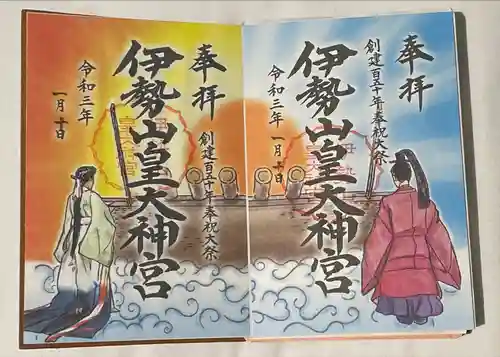 奉拝
創建百五十年奉祝大祭
伊勢山皇大神宮
令和三年一月十日
奉拝
伊勢山皇大神宮
創建百五十年奉祝大祭
令和三年
一月十日